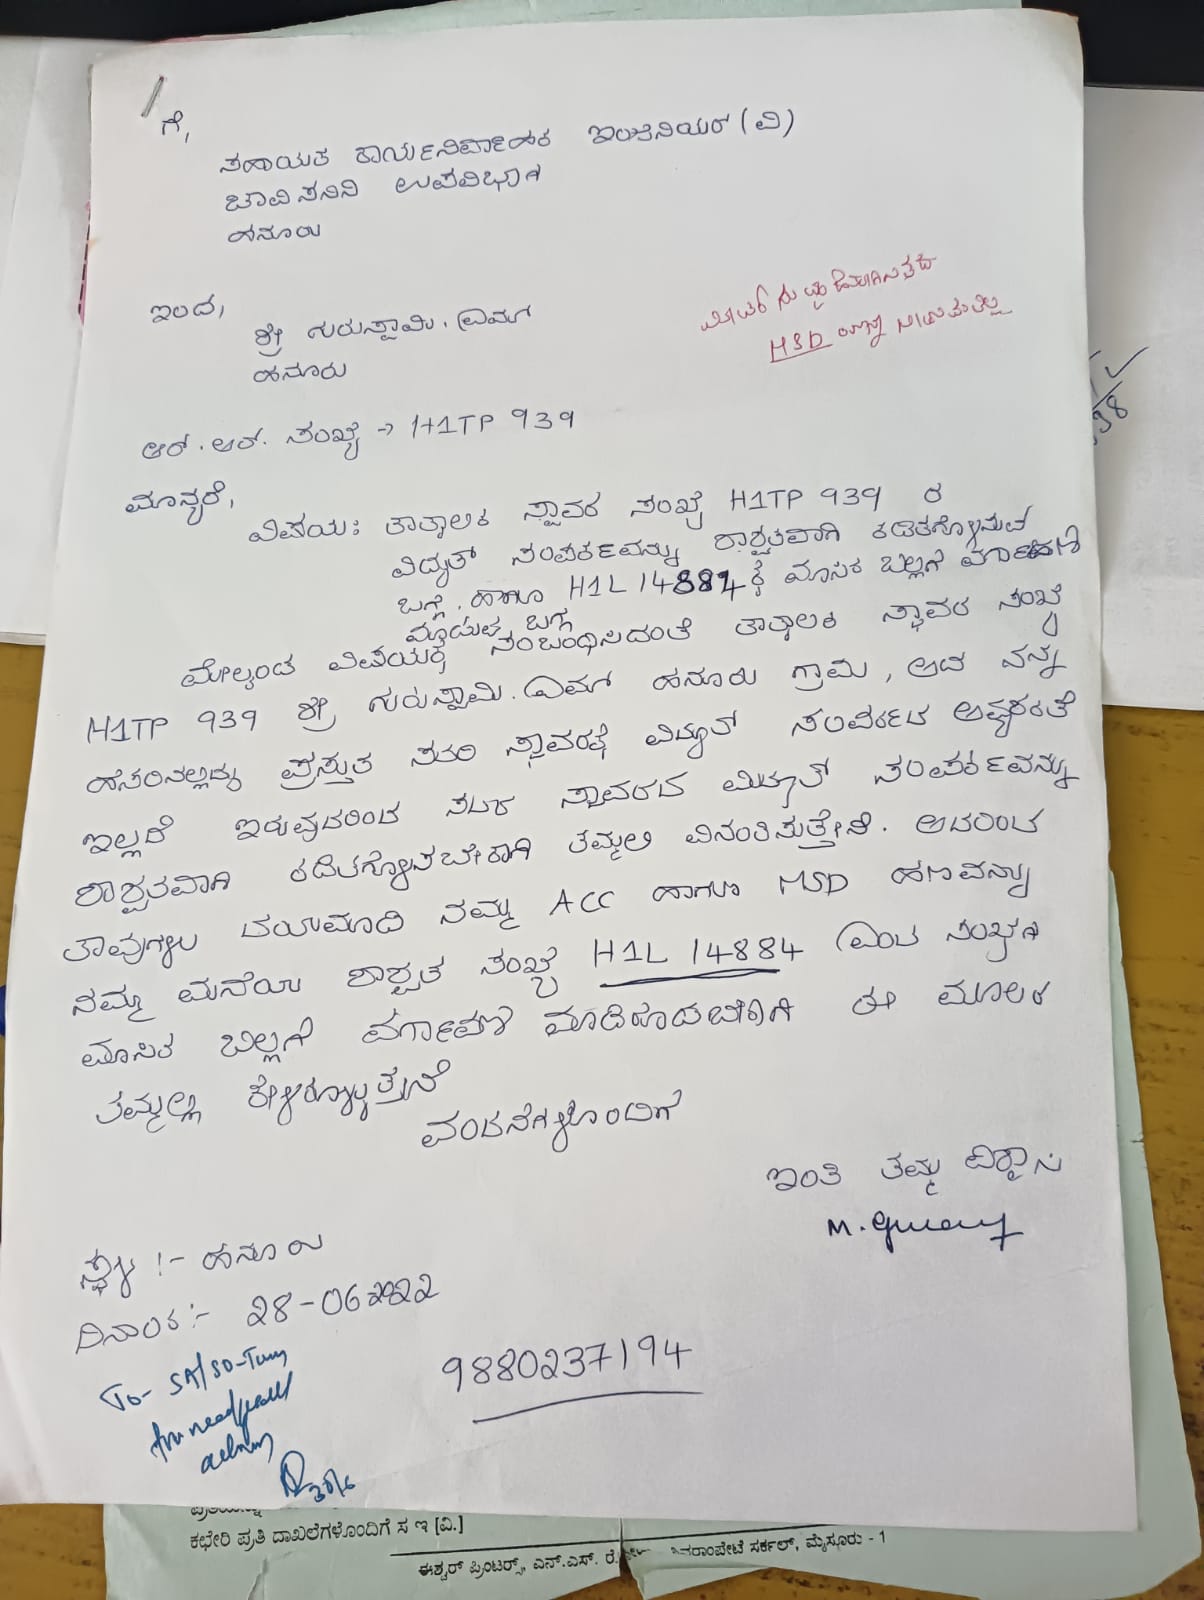 ಗೆ,
ಸಹಾಯಕ ಕಾರ್ಯನಿರ್ವಾಹಕ ಇಂಜಿನಿಯರ್ (ವಿ)
ಚಾವಿಸನಿನಿ ಉಪವಿಭಾಗ
ಹನೂರು
ಇಂದ,
ಶ್ರೀ ಗುರುಸ್ವಾಮಿ. ಎಮ್
ಹನೂರು
MSD
ಆರ್. ಆರ್. ಸಂಖ್ಯೆ → H1TP 939
ಮಾನ್ಯರೆ,
ವಿಷಯ: ತಾತ್ಕಾಲಿಕ ಸ್ಥಾವರ ಸಂಖ್ಯೆ H1TP 939 ರ
ವಿದ್ಯುತ್ ಸಂಪರ್ಕವನ್ನು ಶಾಶ್ವತವಾಗಿ ಕಡಿತಗೊಳಿಸುವ
ಬಗ್ಗೆ. ಹಾಗೂ H1L 14884 ಕ್ಕೆ ಮಾಸಿಕ ಬಿಲ್ಲಿಗೆ ವರ್ಗಾವಣೆ
ಮಾಡುವ ಬಗ್ಗೆ
ಮೇಲ್ಕಂಡ ವಿಷಯಕ್ಕೆ ಸಂಬಂಧಿಸಿದಂತೆ ತಾತ್ಕಾಲಿಕ ಸ್ಥಾವರ ಸಂಖ್ಯೆ
H1TP 939 ಶ್ರೀ ಗುರುಸ್ವಾಮಿ. ಎಮ್ ಹನೂರು ಗ್ರಾಮ,
ಹೆಸರಿನಲ್ಲಿದ್ದು ಪ್ರಸ್ತುತ ಸದರಿ ಸ್ಥಾವರಕ್ಕೆ ವಿದ್ಯುತ್ ಸಂಪರ್ಕದ ಅವಶ್ಯಕತೆ
ಇಲ್ಲದೆ ಇರುವುದರಿಂದ ಸದರಿ ಸ್ಥಾವರದ ವಿದ್ಯುತ್ ಸಂಪರ್ಕವನ್ನು
ಶಾಶ್ವತವಾಗಿ ಕಡಿತಗೊಳಿಸಬೇಕಾಗಿ ತಮ್ಮಲ್ಲಿ ವಿನಂತಿಸುತ್ತೇನೆ. ಆದರಿಂದ
ತಾವುಗಳು ದಯಮಾಡಿ ನಮ್ಮ ACC ಹಾಗೂ MSD ಹಣವನ್ನು
ನಮ್ಮ ಮನೆಯ ಶಾಶ್ವತ ಸಂಖ್ಯೆ H1L 14884 ಎಂಬ ಸಂಖ್ಯೆಗೆ
ಮಾಸಿಕ ಬಿಲ್ಲಿಗೆ ವರ್ಗಾವಣೆ ಮಾಡಿಕೊಡಬೇಕಾಗಿ ಈ ಮೂಲಕ
ತಮ್ಮಲ್ಲಿ ಕೇಳಿಕೊಳ್ಳುತ್ತೇನೆ
ವಂದನೆಗಳೊಂದಿಗೆ
ಇಂತಿ ತಮ್ಮ ವಿಶ್ವಾಸಿ
ಸ್ಥಳ :- ಹನೂರು
ದಿನಾಂಕ:- 28-06-2022
9880237194
To- SA/SO-
30/6
ಕಛೇರಿ ಪ್ರತಿ ದಾಖಲೆಗಳೊಂದಿಗೆ ಸ ಇ [ವಿ.]
ಈಶ್ವರ್ ಪ್ರಿಂಟರ್ಸ್, ಎನ್.ಎಸ್. ಸರ್ಕಲ್, ಮೈಸೂರು - 1